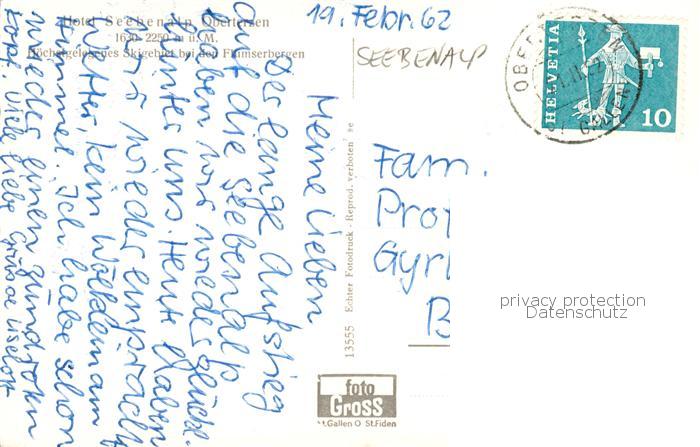 Hotel Seebenalp Oberterzen
1630-2250 m ü. M.
Höchstgelegenes Skigebiet bei den Flumserbergen
19. Febr. 62
SEEBENALP
Meine Lieben
Der lange Aufstieg
auf die Seebenalp
haben wir wieder glückl.
hinter uns. Heute haben
wir wieder ein prächt
Wetter, kein Wölklein am
Himmel. Ich habe schon
wieder einen zündroten
Kopf. Viele liebe Grüsse Liselott
13555 Echter Fotodruck - Reprod. verboten
foto
Gross
St.Gallen O St.Fiden
HELVETIA
10
OBERTERZEN
ST. GALLEN
Fam.
Prof
Gyr
B
privacy protection
Datenschutz